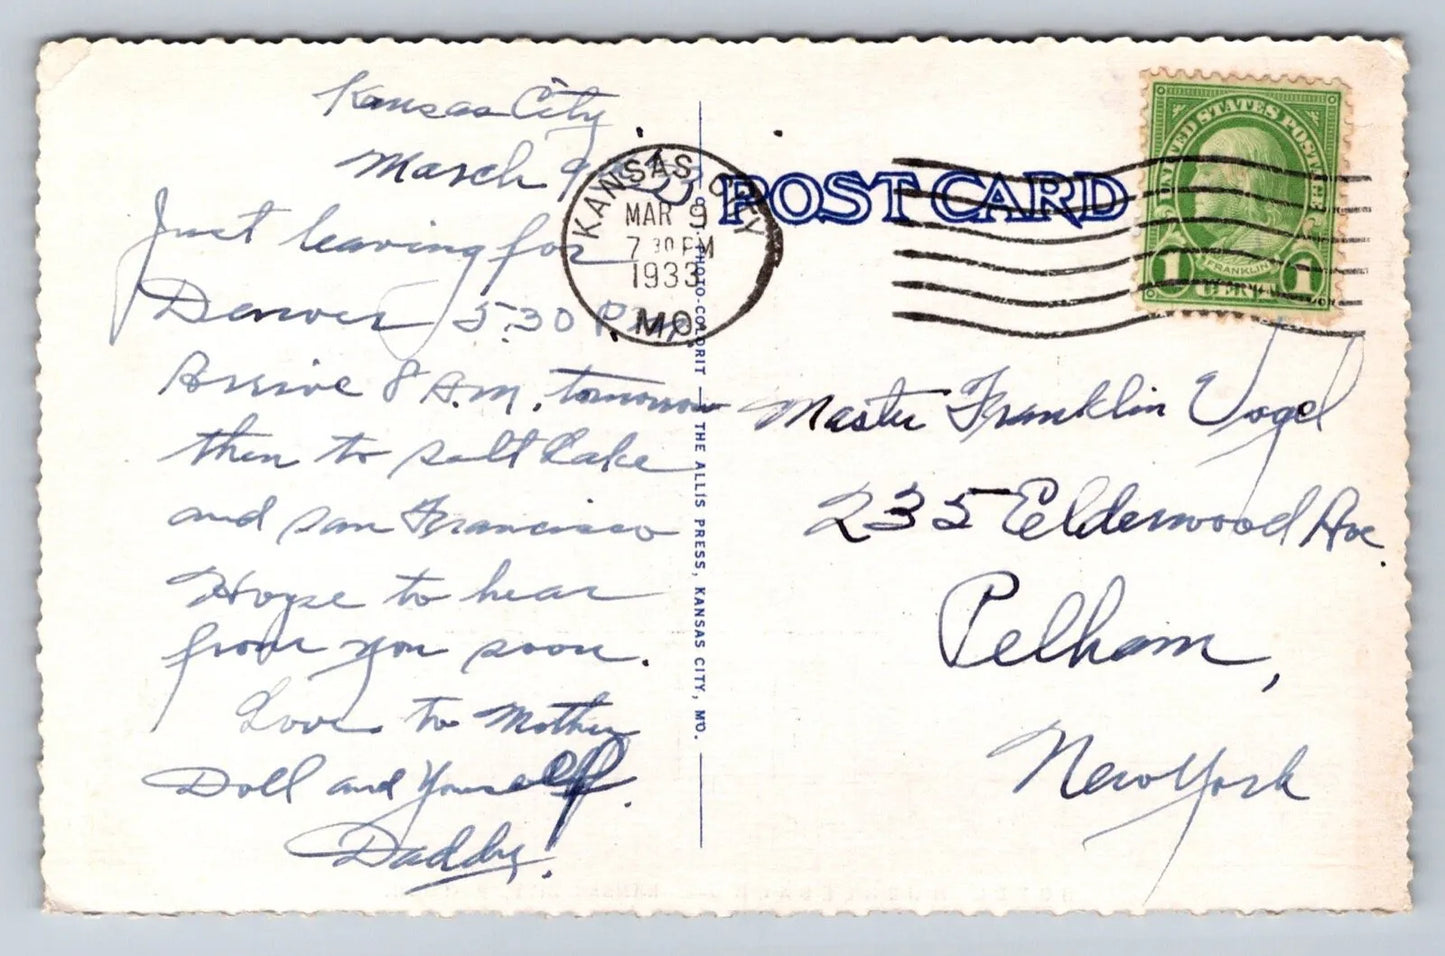 Kansas City
March 9
Just leaving for
Denver 5:30 P.M.
Arrive 8 A.M. tomorrow
then to salt Lake
and san Francisco
Hope to hear
from you soon.
Love to Mother
Doll and Yourself.
Daddy.
KANSAS CITY
MAR 9
7 30 PM
1933
MO.
PHOTO-COLORIT — THE ALLIS PRESS, KANSAS CITY, MO.
POST CARD
UNITED STATES POSTAGE
FRANKLIN
1 CENT 1
Master Franklin Vogel
235 Elderwood Ave.
Pelham,
New York